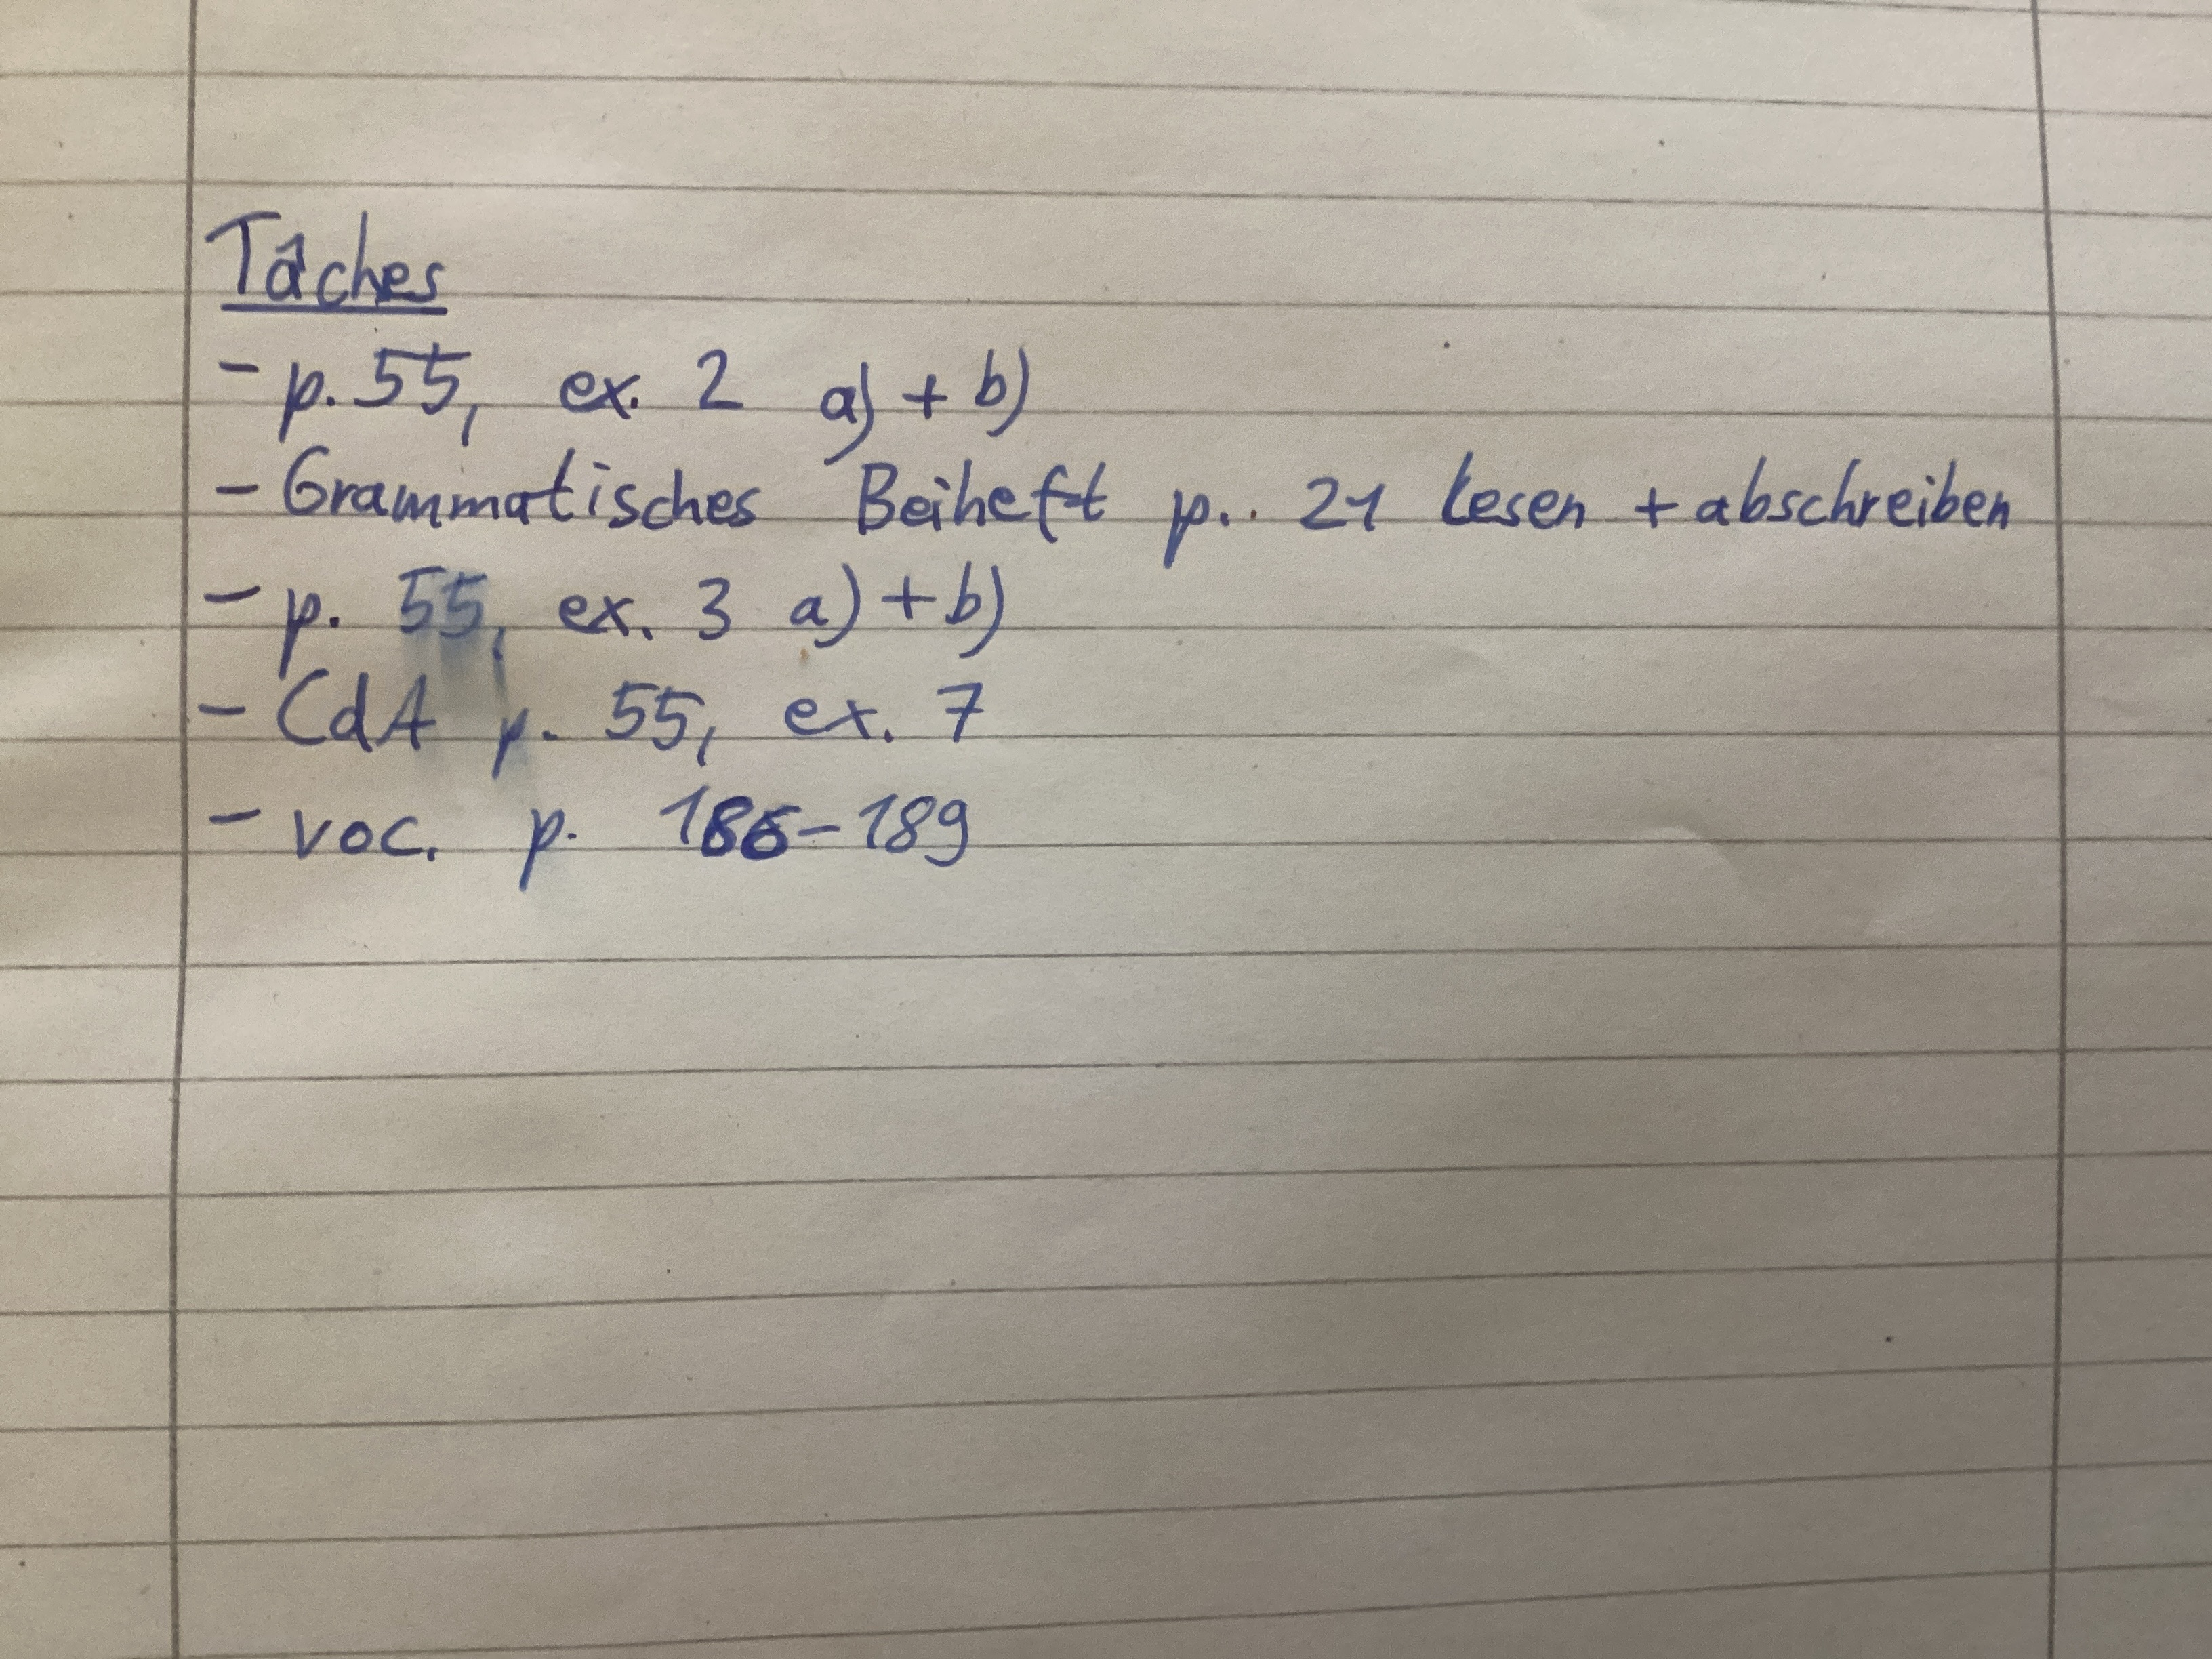 Tâches
- p. 55, ex. 2 a) + b)
- Grammatisches Beiheft p.. 21 lesen + abschreiben
- p. 55, ex. 3 a) + b)
- CdA p. 55, ex. 7
- voc. p. 186-189